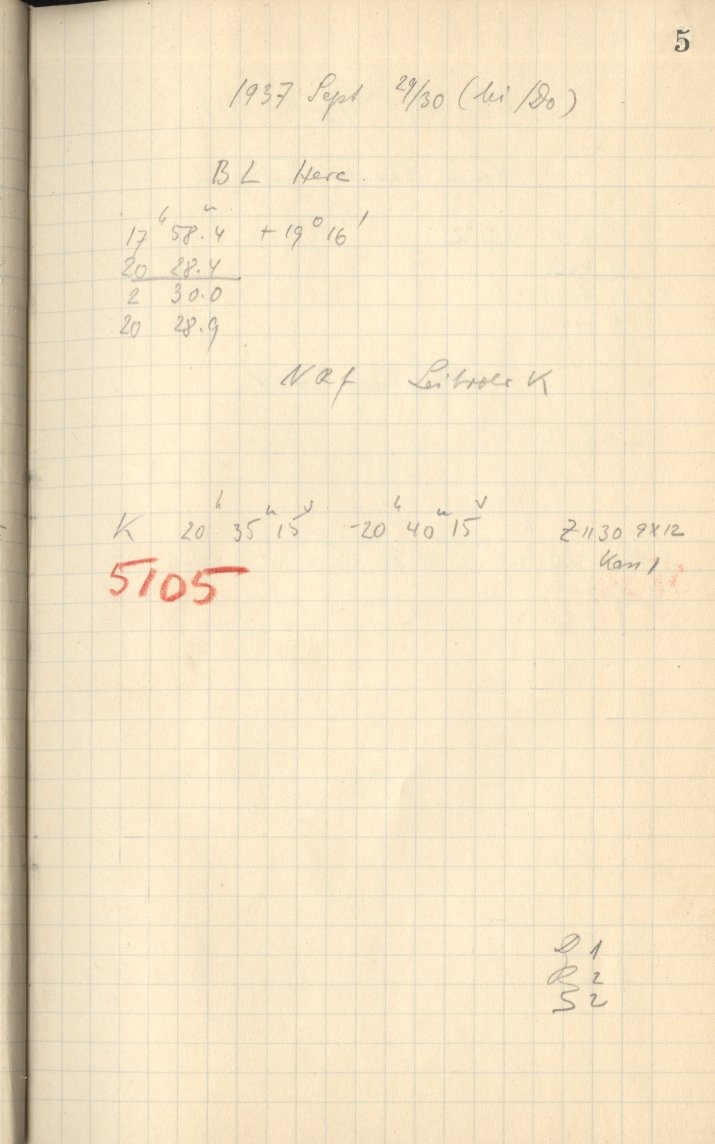 5
1937 Sept 29/30 (Mi/Do)
BL Herc.
17h 58m.4 + 19° 16'
20 28.4
2 30.0
20 28.9
NAf Leitrohr K
K 20h 35m 15s - 20h 40m 15s Z 1130 9x12
Kass 1
5105
D 1
R 2
S 2